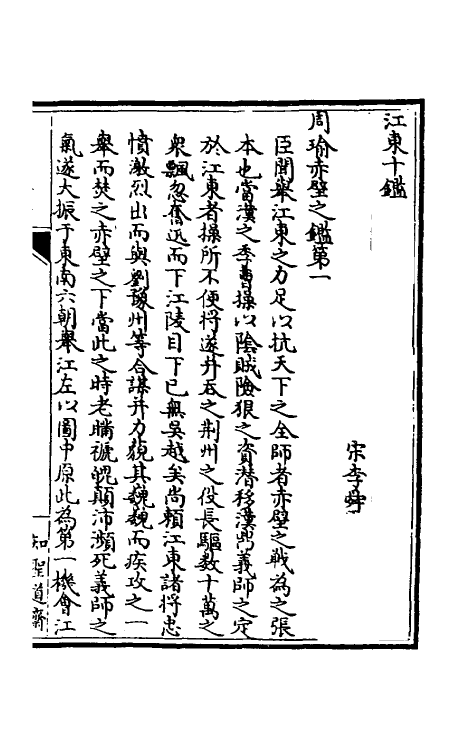 江東十鑑
宋李舜
周瑜赤壁之鑑第一
臣聞舉江東之力足以抗天下之全師者赤壁之戰為之張
本也當漢之季曹操以陰賊險狠之資潛移漢鼎義師之定
於江東者操所不便將遂并吞之荆州之役長驅數十萬之
衆飄忽奮迅而下江陵目下已無吳越矣尚賴江東諸將忠
憤激烈出而與劉豫州等合謀并力藐其巍巍而疾攻之一
舉而焚之赤壁之下當此之時老瞞褫魄顛沛瀕死義師之
氣遂大振于東南六朝舉江左以圖中原此為第一機會江
知聖道齋